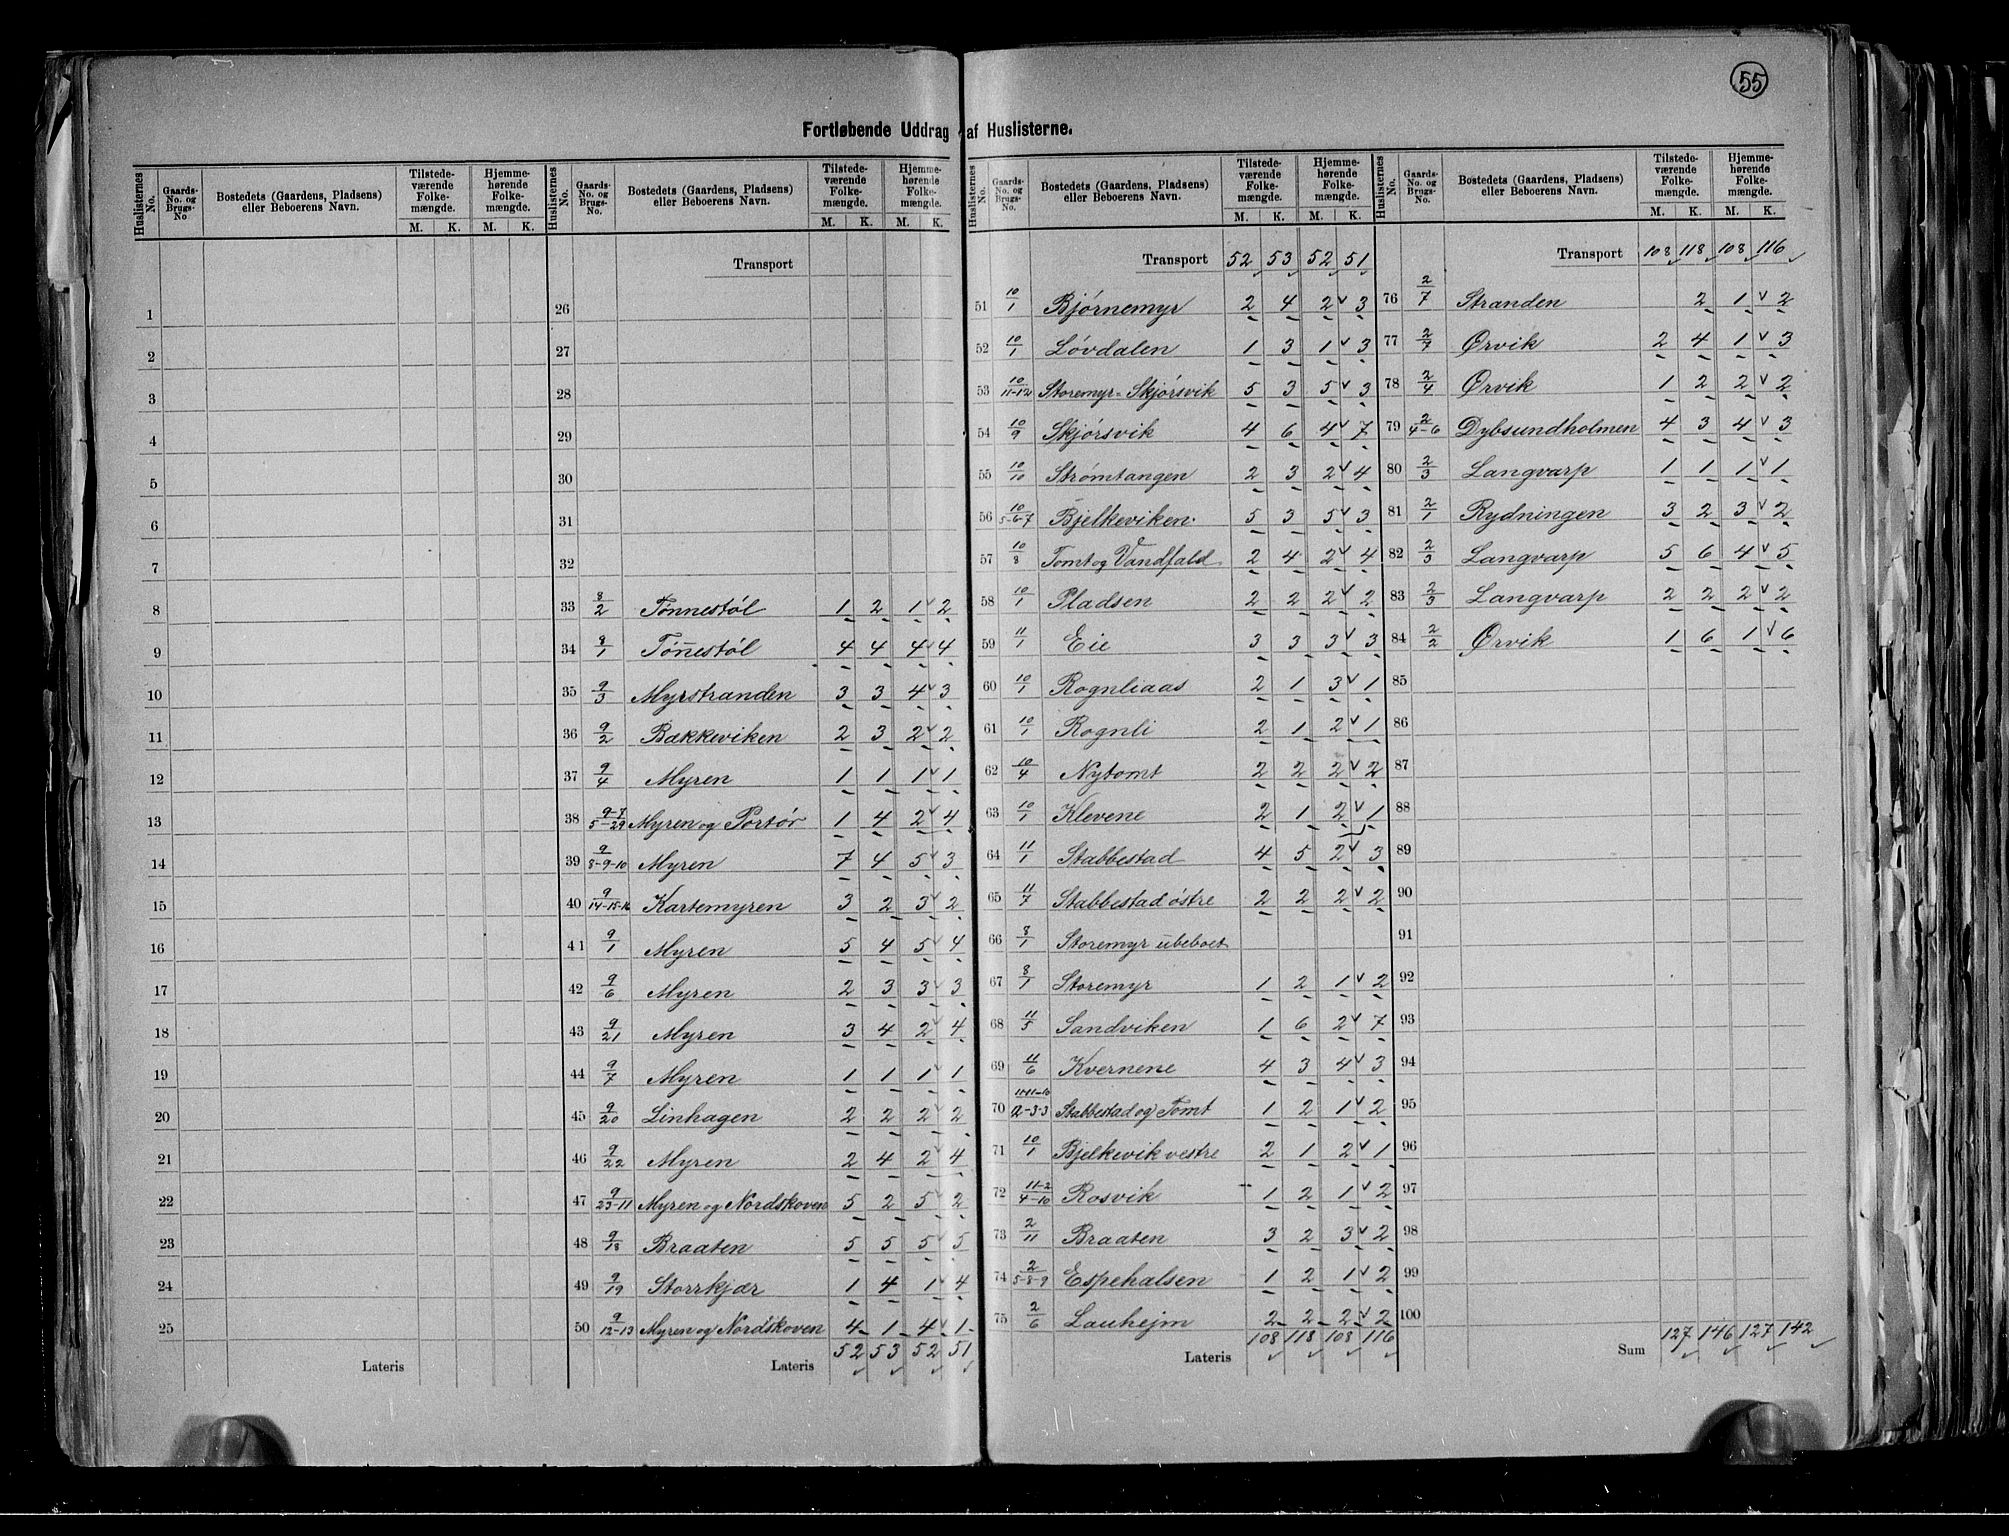 55
Fortløbende Uddrag af Huslisterne.
Huslisternes No. Gaards-No. og Brugs-No Bostedets (Gaardens, Pladsens) eller Beboerens Navn. Tilstedeværende Folkemængde. M. K. Hjemmehørende Folkemængde. M. K.
1
2
3
4
5
6
7
8
9
10
11
12
13
14
15
16
17
18
19
20
21
22
23
24
25
Lateris
Huslisternes No. Gaards-No. og Brugs-No. Bostedets (Gaardens, Pladsens) eller Beboerens Navn. Tilstedeværende Folkemængde. M. K. Hjemmehørende Folkemængde. M. K.
Transport
26
27
28
29
30
31
32
33 8/2 Tønnestøl 1 2 1 2
34 8/1 Tønnestøl 4 4 4 4
35 9/3 Myrstranden 3 3 4 3
36 9/2 Bakkeviken 2 3 2 2
37 9/4 Myren 1 1 1 1
38 9-7/5-29 Myren og Portør 1 4 2 4
39 9/8-9-10 Myren 7 4 5 3
40 9/14-15-16 Kartemyren 3 2 3 2
41 9/1 Myren 5 4 5 4
42 9/6 Myren 2 3 3 3
43 9/21 Myren 3 4 2 4
44 9/7 Myren 1 1 1 1
45 9/20 Linhagen 2 2 2 2
46 9/22 Myren 2 4 2 4
47 9/23-11 Myren og Nordskoven 5 2 5 2
48 9/18 Braaten 5 5 5 5
49 9/19 Storrkjær 1 4 1 4
50 9/12-13 Myren og Nordskoven 4 1 4 1
Lateris 52 53 52 51
Huslisternes No. Gaards-No. og Brugs-No. Bostedets (Gaardens, Pladsens) eller Beboerens Navn. Tilstedeværende Folkemængde. M. K. Hjemmehørende Folkemængde. M. K.
Transport 52 53 52 51
51 10/1 Bjørnemyr 2 4 2 3
52 10/1 Løvdalen 1 3 1 3
53 10/11-12 Storemyr-Skjørsvik 5 3 5 3
54 10/9 Skjørsvik 4 6 4 7
55 10/10 Strømtangen 2 3 2 4
56 10/5-6-7 Bjelkeviken 5 3 5 3
57 10/8 Tomt og Vandfald 2 4 2 4
58 10/1 Pladsen 2 2 2 2
59 11/1 Eie 3 3 3 3
60 10/1 Rognliaas 2 1 3 1
61 10/1 Rognli 2 1 2 1
62 10/4 Nytomt 2 2 2 2
63 10/1 Klevene 2 1 2 1
64 11/1 Stabbestad 4 5 2 3
65 11/7 Stabbestad østre 2 2 2 2
66 8/1 Storemyr ubeboet
67 8/1 Storemyr 1 2 1 2
68 11/5 Sandviken 1 6 2 7
69 11/6 Kvernene 4 3 4 3
70 Stabbestad og Tomt 1 2 1 2
71 10/1 Bjelkevik vestre 2 1 2 1
72 11-2/4-10 Rosvik 1 2 1 2
73 2/11 Braaten 3 2 3 2
74 2/5-8-9 Espehalsen 1 2 1 2
75 2/6 Lauhejm 2 2 2 2
Lateris 108 118 108 116
Huslisternes No. Gaards-No. og Brugs-No. Bostedets (Gaardens, Pladsens) eller Beboerens Navn. Tilstedeværende Folkemængde. M. K. Hjemmehørende Folkemængde. M. K.
Transport 108 118 108 116
76 2/7 Stranden 2 1 2
77 2/7 Ørvik 2 4 1 3
78 2/4 Ørvik 1 2 2 2
79 2/4-6 Dybsundholmen 4 3 4 3
80 2/3 Langvarp 1 1 1 1
81 2/1 Rydningen 3 2 3 2
82 2/3 Langvarp 5 6 4 5
83 2/3 Langvarp 2 2 2 2
84 2/2 Ørvik 1 6 1 6
85
86
87
88
89
90
91
92
93
94
95
96
97
98
99
100
Sum 127 146 127 142